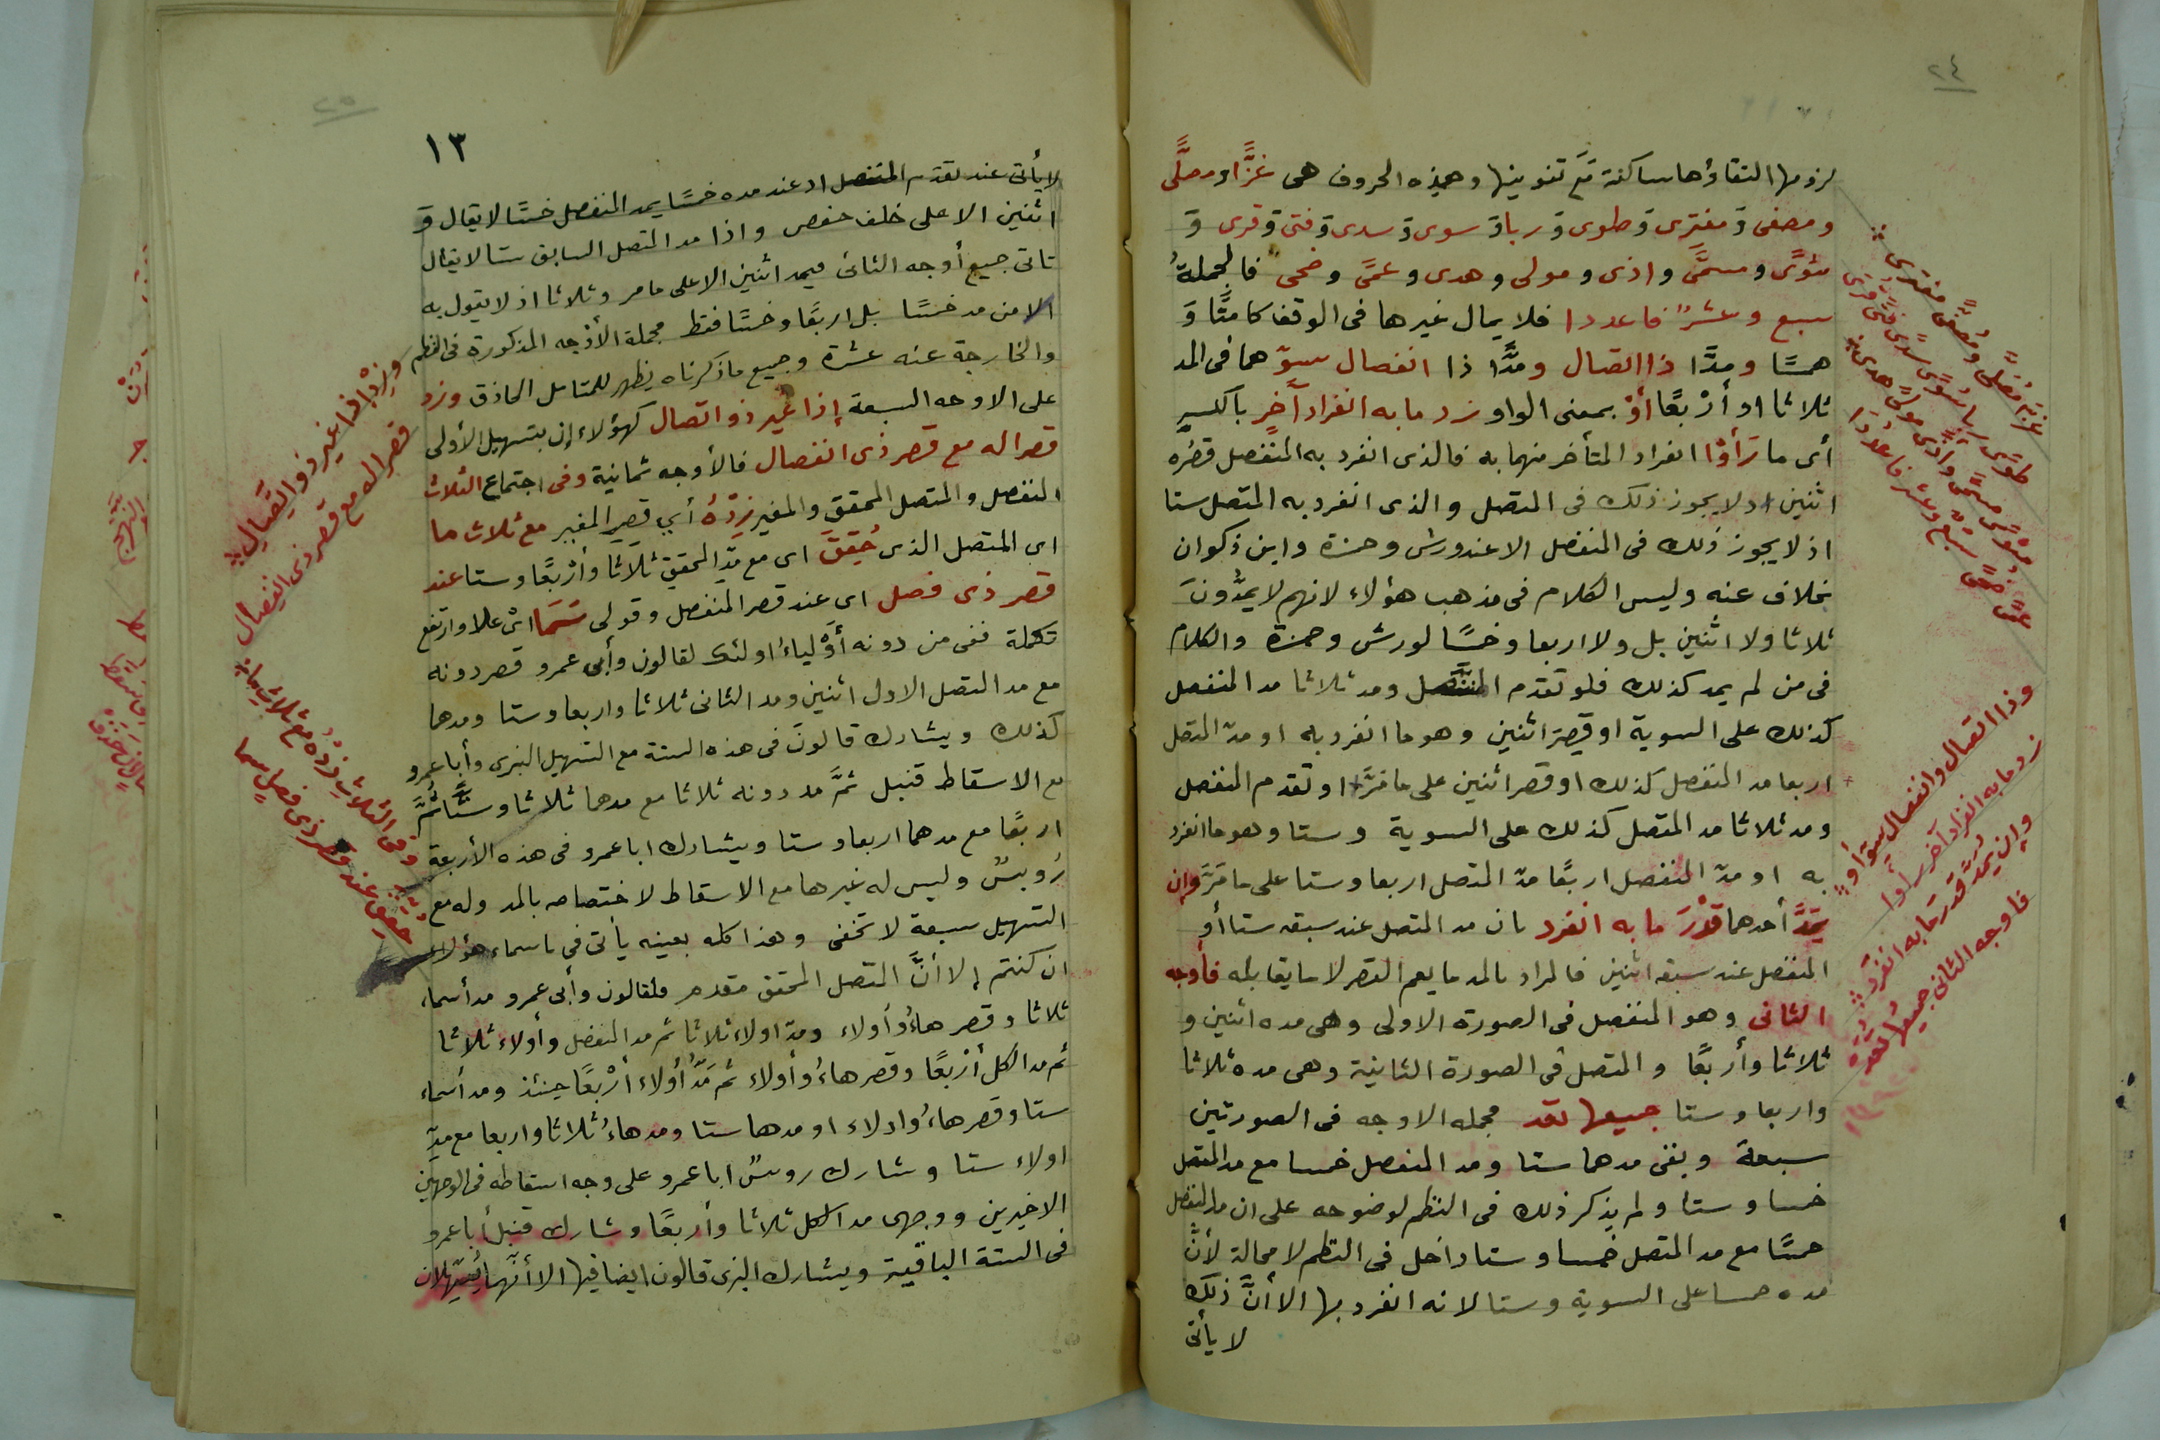 ٢٤
لزومها التقاؤها ساكنة مع تنوينها وهذه الحروف هى غزًّا ومصلًّى
ومصفى وَ مفترى وَ طوى وَ ربا وَ سوى وَ سدى وَ فتى وَ قرى وَ
مثوًى ومسمًّى واذى ومولى وهدى وعمًى وضحى فالجملة
سبع وعشرٌ فاعددا فلا يمال غيرها فى الوقف كامتًا وَ
همسًا ومدًّا ذا اتصال ومدًّا ذا انفصال سوّ هما فى المد
ثلاثا او أرْبعًا أوْ بمعنى الواو زد ما به انفراد آخرٍ بالكسر
أى ما رَأوْا انفراد المتأخر منهما به فالذى انفرد به المنفصل قصْره
اثنين اذ لا يجوز ذلك فى المتصل والذى انفرد به المتصل ستا
اذ لا يجوز ذلك فى المنفصل الا عند ورش وحمزة وابن ذكوان
بخلاف عنه وليس الكلام فى مذهب هؤلاء لانهم لا يمدّونَ
ثلاثا ولا اثنين بل ولا اربعا وخمسًا لورش وحمزة والكلام
فى من لم يمد كذلك فلو تقدم المتصل ومد ثلاثا مد المنفصل
كذلك على السوية او قصر اثنين وهو ما انفرد به او مدّ المتصل
اربعا مد المنفصل كذلك او قصر اثنين على ما مَرَّ او تقدم المنفصل
ومد ثلاثا مد المتصل كذلك على السوية وستا وهو ما انفرد
به او مدّ المنفصل اربعًا مدّ المتصل اربعا وستا على ما مَرَّ وإن
يمَدَّ أحدهما قدْرَ ما به انفرد بان مد المتصل عند سبقه ستا أو
المنفصل عند سبقه اثنين فالمراد بالمد ما يعم القصر لا ما يقابله فأوجه
الثانى وهو المنفصل فى الصورة الاولى وهى مده اثنين و
ثلاثا وأربعًا والمتصل فى الصورة الثانية وهى مده ثلاثا
واربعا وستا جميعها تعد فجمله الاوجه فى الصورتين
سبعة وبقى مدهما ستا ومد المنفصل خمسا مع مد المتصل
خمسا وستا ولم يذكر ذلك فى النظم لوضوحه على ان مد المنفصل
خمسًا مع مد المتصل خمسا وستا داخل فى النظم لا محالة لأنّ
مده خمسا على السوية وستا لانه انفرد بها الا أنَّ ذلك
لا يأتى
وذا اتصال وانفصال سوّ أو
زد ما به انفراد آخر رأوا
وإن يمدّ قدر ما به انفرد
فاوجه الثانى جميعها تعد
٢٥
١٣
لا يأتى عند تقدم المتفصل او عند مده خمسًا يمد المنفصل خمسًا لا يقال وَ
اثنين الا على خلف حفص واذا مد المتصل السابق ستا لا يقال
تاتى جميع أوجه الثانى فيمد اثنين الا على ما مر وثلاثا اذ لا يقول به
الا من مد خمسًا بل اربعًا وخمسًا فقط فجملة الأوجه المذكورة فى النظم
والخارجة عنه عشرة وجميع ما ذكرناه يظهر للمتامل الحاذق وزد
على الاوجه السبعة إذا غير ذو اتصال كهؤلاء إن بتسهيل الأولى
قصرا له مع قصر ذى انفصال فالأوجه ثمانية وفى اجتماع الثلاث
المنفصل والمتصل المحقق والمغير زِدْهُ أي قصر المغير مع ثلاث ما
اى المتصل الذى حُقِّقَ اى مع مدّ المحقق ثلاثًا وأرْبعًا وستا عند
قصر ذى فصل اى عند قصر المنفصل وقولى سَمَا اىْ علا وارتفع
تكملة ففى من دونه أوْلياءُ اولئك لقالون وأبى عمرو قصر دونه
مع مد المتصل الاول اثنين ومد الثانى ثلاثا واربعا وستا ومدهما
كذلك ويشارك قالونَ فى هذه الستة مع التسهيل البزى وأبا عمرو
مع الاسقاط قنبل ثمَّ مد دونه ثلاثا مع مدهما ثلاثا وستًّا ثُمَّ
اربعًا مع مدهما اربعا وستا ويشارك ابا عمرو فى هذه الأربعة
رُويسٌ وليس له غيرها مع الاسقاط لاختصاصه بالمد وله مع
التسهيل سبعة لا تخفى وهذا كله بعينه يأتى فى باسماء هؤلاء
ان كنتم إلا أنَّ المتصل المحقق مقدم فلقالون وأبى عمرو مد أسماء
ثلاثا وقصر هاءُ وأولاء ومدّ اولاء ثلاثا ثم مد المنفصل وأولاء ثلاثا
ثم مد الكل أربعًا وقصر هاءُ وأولاء ثم مَدُّ أولاء أرْبعًا حينئذ ومد أسماء
ستا وقصر هاءُ واولاء او مدهما ستا ومد هاءُ ثلاثا واربعا مع مدّ
اولاء ستا وشارك رويسٌ ابا عمرو على وجه اسقاطه فى الوجهين
الاخيرين ووجهى مد الكل ثلاثا وأربعًا وشارك قنبل أبا عمرو
فى الستة الباقية ويشارك البزى قالون ايضا فيها الا أنّهما يُسَهِّلان
وزد إذا غير ذو اتّصال
قصرا له مع قصر ذى انفصال
وفى الثلاث زدْهُ مع ثلاث ما
حُقّق عند قصر ذى فصل سما